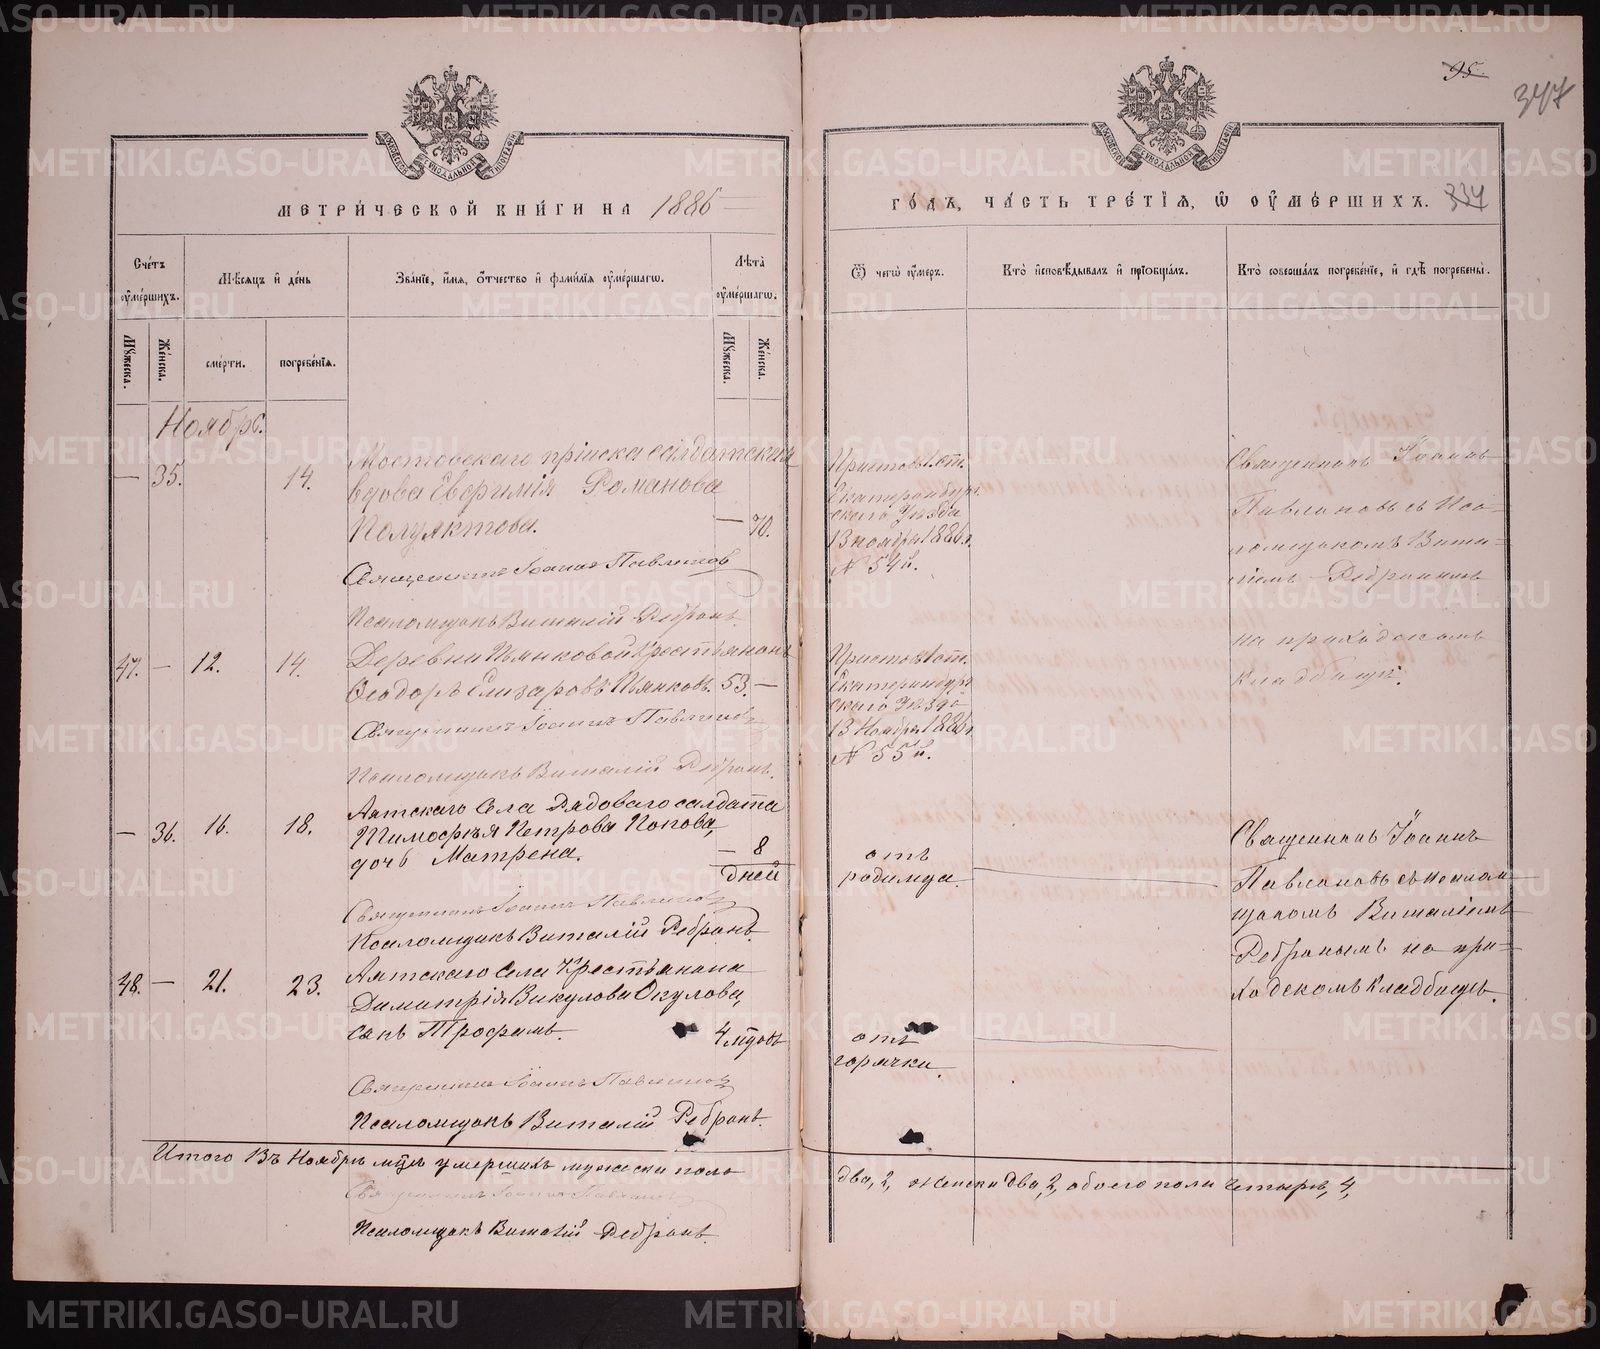 95
347
МЕТРИЧЕСКОЙ КНИГИ НА 1886
ГОДЪ, ЧАСТЬ ТРЕТІЯ, Ѿ ОУМЕРШИХЪ. 337
Счетъ оумершихъ.
Мѣсяцъ и день
Званіе, имя, отчество и фамилія оумершагѡ.
Лѣта оумершагѡ.
Ѿ чегѡ оумеръ.
Кто исповѣдывалъ и пріобщалъ.
Кто совершалъ погребеніе, и гдѣ погребены.
Мужеска.
Женска.
смерти.
погребенія.
Мужеска.
Женска.
Ноябрь.
— 35. 14.
Мостовскаго пріиска солдатская
вдова Евфимія Романова
Полуяктова. — 70.
Священникъ Іоаннъ Павлиновъ
Псаломщикъ Виталій Ребринъ.
Приставъ 1 ст.
Екатеринбург-
скаго Уѣзда
13 ноября 1886 г.
№ 54й.
Священникъ Іоаннъ
Павлиновъ съ Пса-
ломщикомъ Вита-
ліемъ Ребринымъ
на приходскомъ
кладбищѣ.
47. — 12. 14.
Деревни Пьянковой Крестьянинъ
Ѳеодоръ Елизаровъ Пьянковъ. 53. —
Священникъ Іоаннъ Павлиновъ
Псаломщикъ Виталій Ребринъ.
Приставъ 1 ст.
Екатеринбург-
скаго Уѣзда
13 Ноября 1886 г.
№ 55й.
— 36. 16. 18.
Аятскаго Села Рядоваго солдата
Тимофѣя Петрова Попова,
дочь Матрена. — 8 дней
Священникъ Іоаннъ Павлиновъ
Псаломщикъ Виталій Ребринъ.
отъ
родимца.
Священникъ Іоаннъ
Павлиновъ съ псалом-
щикомъ Виталіемъ
Ребринымъ на при-
ходскомъ кладбищѣ.
48. — 21. 23.
Аятскаго Села Крестьянина
Димитрія Викулова Окулова,
сынъ Трофимъ. 4 мцовъ
Священникъ Іоаннъ Павлиновъ
Псаломщикъ Виталій Ребринъ.
отъ
горячки.
Итого въ Ноябрѣ мцѣ умершихъ мужеска пола
два, 2, женска два, 2, обоего пола четыре, 4,
Священникъ Іоаннъ Павлиновъ
Псаломщикъ Виталій Ребринъ.
METRIKI.GASO-URAL.RU